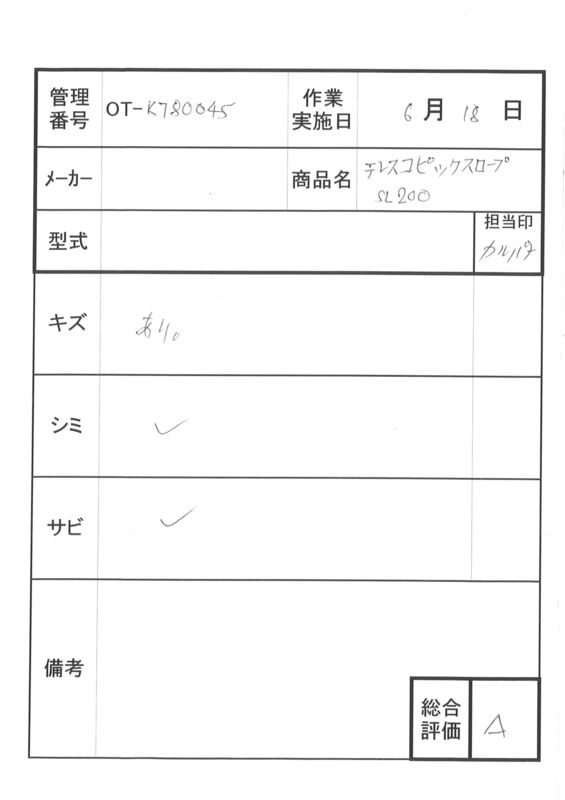 管理番号 OT-K780045 作業実施日 6月18日
メーカー 商品名 テレスコピックスロープ
SL200
型式 担当印
カルパナ
キズ あり。
シミ ✓
サビ ✓
備考
総合評価 A